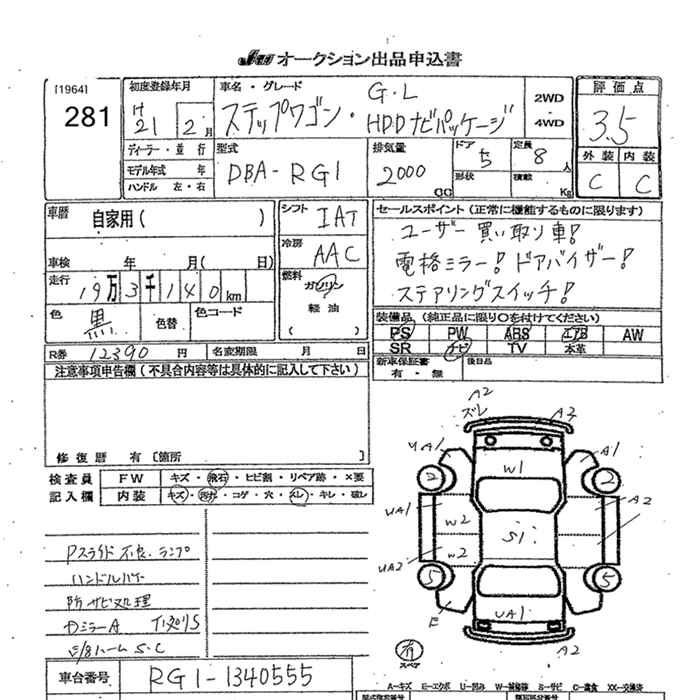 JU オークション出品申込書
[1964]
281
初度登録年月
H 21 2月
車名・グレード
ステップワゴン・G・L HDDナビパッケージ
2WD
4WD
評価点
3.5
外装 内装
C C
ディーラー・並行
モデル年式 年
ハンドル 左・右
型式
DBA-RG1
排気量
2000 CC
ドア 5
形状
定員 8人
積載 Kg
車歴 自家用( )
車検 年 月( 日)
走行 19万3千140km
色 黒 色替 色コード
シフト IAT
冷房 AAC
燃料 ガソリン
軽油
( )
セールスポイント(正常に機能するものに限ります)
ユーザー買い取り車!
電格ミラー! ドアバイザー!
ステアリングスイッチ!
装備品(純正品に限り○を付けてください)
PS PW ABS エアB AW
SR ナビ TV 本革
R券 12390円 名変期限 月 日
新車保証書 有・無
後日品
注意事項申告欄(不具合内容等は具体的に記入して下さい)
修復歴 有〔箇所 〕
検査員記入欄
FW キズ・飛石・ヒビ割・リペア跡・×要
内装 キズ・汚れ・コゲ・穴・スレ・キレ・破レ
Pスライド不良、ランプ
ハンドル
防サビ処理
カミラーA
S・C
車台番号 RG1-1340555
A2
ズレ A3
UA1 A1
2 W1 2
UA1 W2 A2
S1
UA2 W2
5 5
E UA1
A2
スペア
A-キズ E-エクボ U-凹み W-補修跡 S-サビ C-腐食 XX-交換済